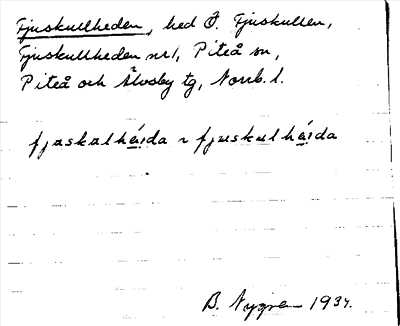 Fjuskullheden, hed Ö. Fjuskullen,
Fjuskullheden nr1, Piteå sn,
Piteå och Älvsby tg, Norrb. l.
fjuskulhéida ~ fjuskulhéida
B. Nygren 1934.